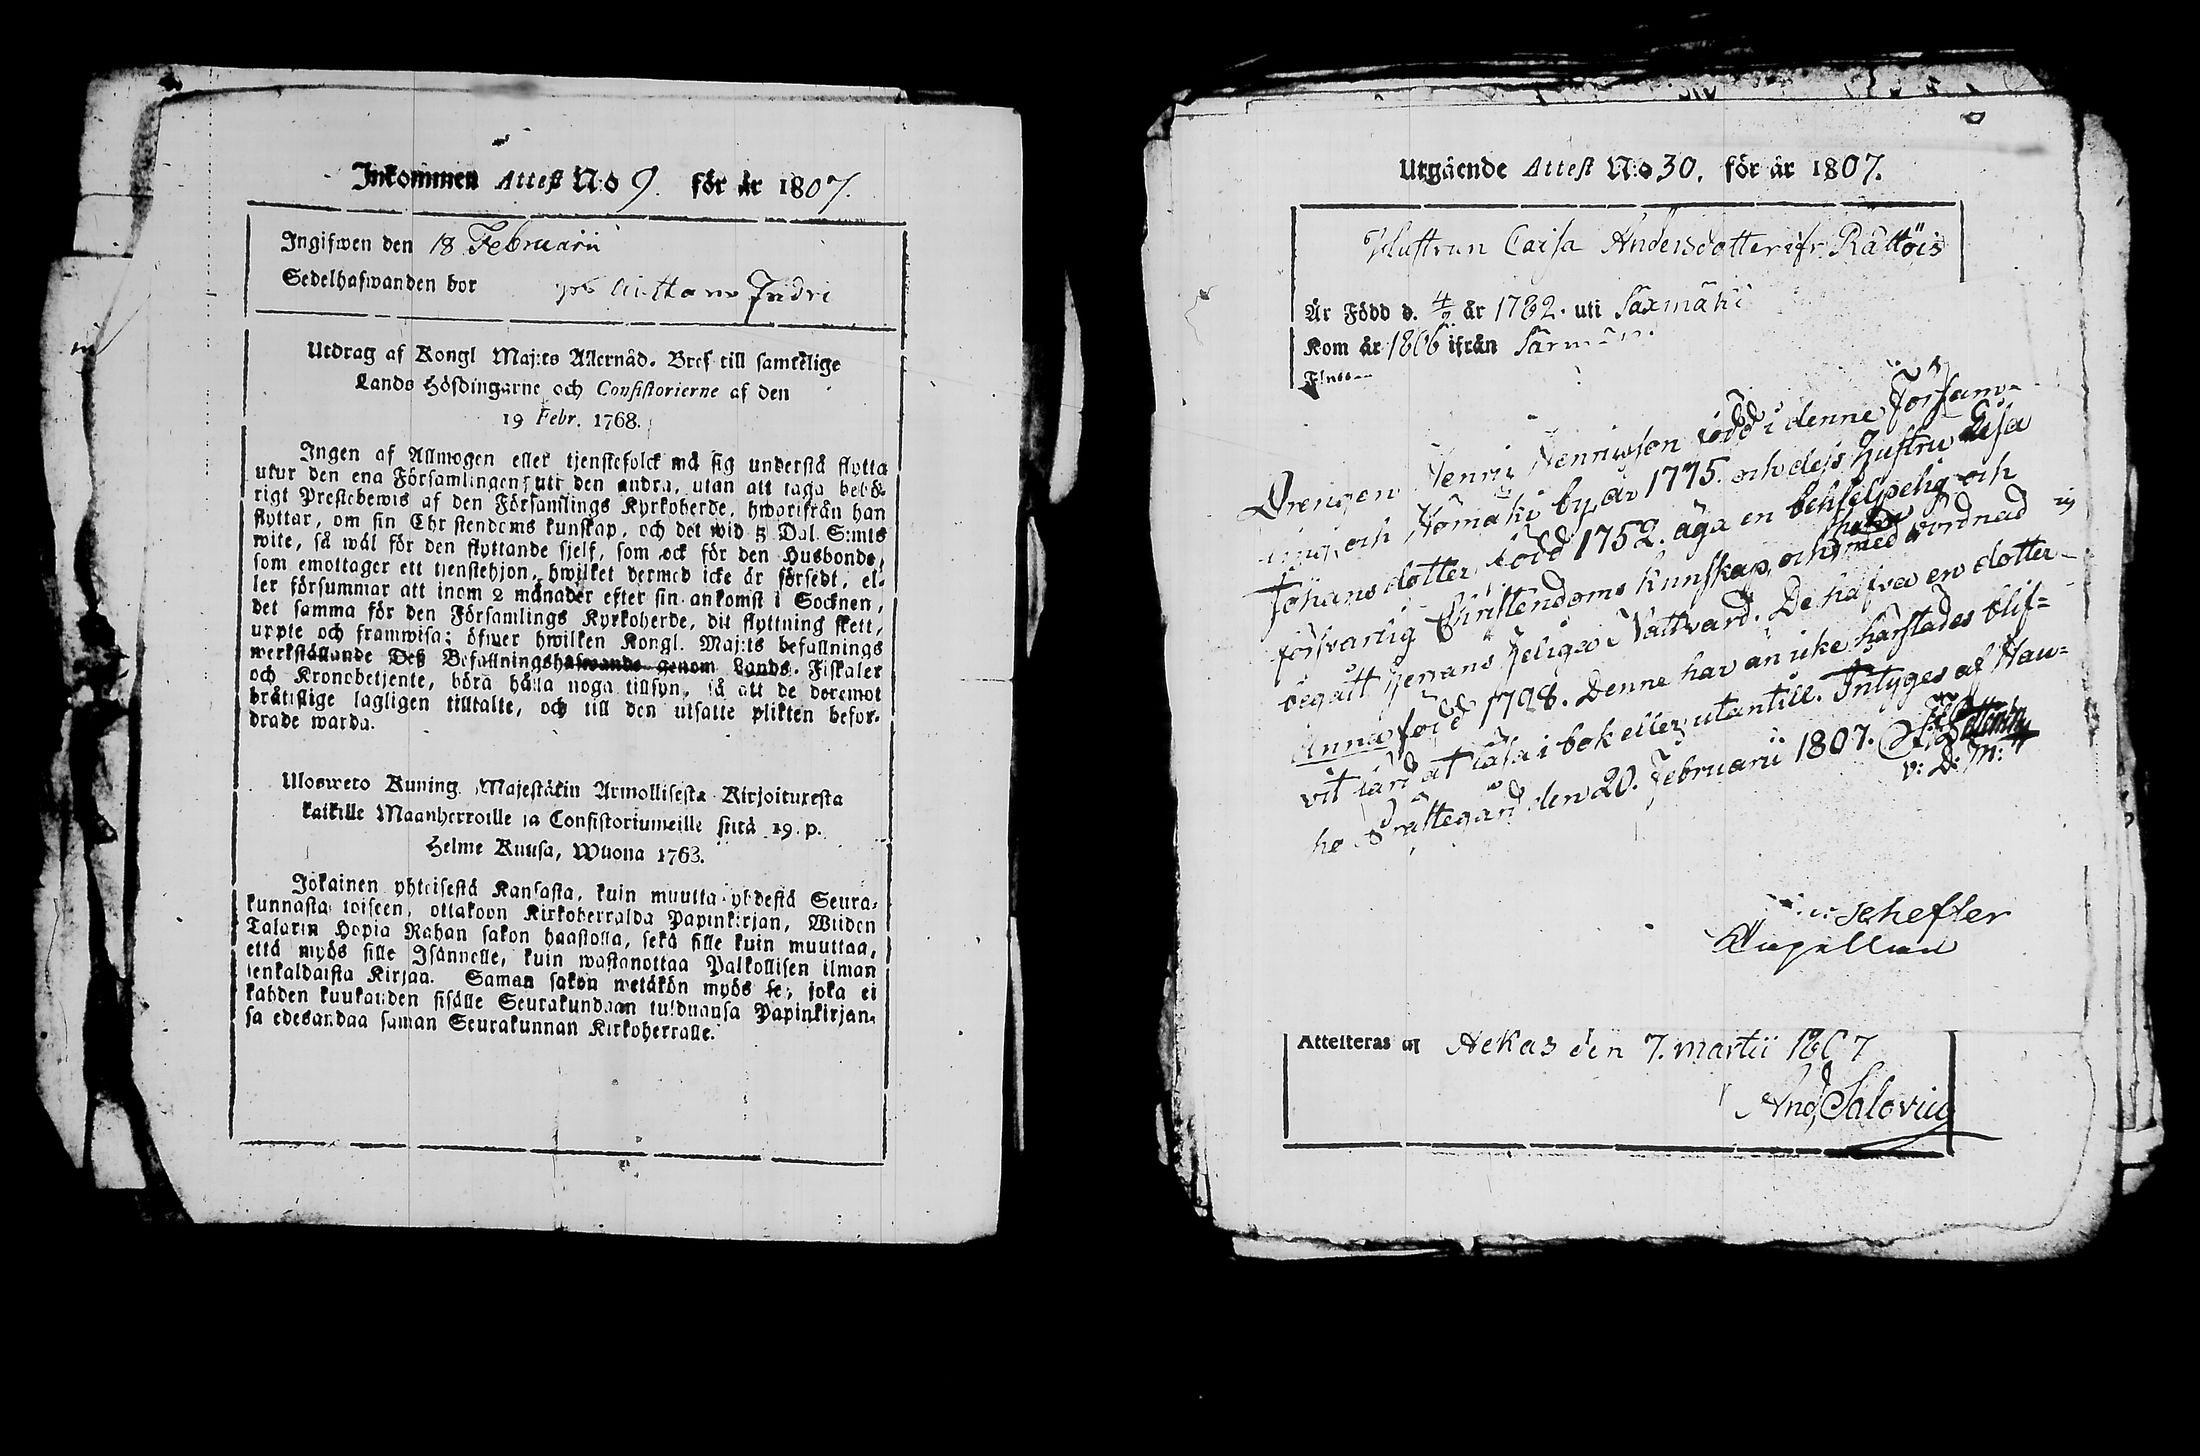 Inkommen Attest No 9. för år 1807.
Ingifwen den 18 Februarii
Sedelhafwanden bor
Utdrag af Kongl Maj:ts Allernåd. Bref till samtelige
Lands Höfdingarne och Consistorierne af den
19 Febr. 1768.
Ingen af Allmogen eller tjenstefolck må sig understå flytta
utur den ena Församlingen uti den andra, utan att taga behö-
rigt Prestebewis af den Församlings Kyrkoherde, hworifrån han
flyttar, om sin Christendoms kunskap, och det wid 5 Dal. S:mts
wite, så wäl för den flyttande sjelf, som ock för den Husbonde,
som emottager ett tjenstehjon, hwilket dermed icke är försedt, el-
ler försummar att inom 2 månader efter sin ankomst i Socknen,
det samma för den Församlings Kyrkoherde, dit flyttning skett,
uppte och framwisa; öfwer hwilken Kongl. Maj:ts befallnings
werkställande Deß Befallningshafwande genom Lands-Fiskaler
och Kronobetjente, böra hålla noga tillsyn, så att de deremot
bråtislige lagligen tilltalte, och till den utsatte plikten befor-
drade warda.
Uloswero Kuning. Majestätin Armollisesta Kirjoituxesta
kaikille Maanherroille ja Consistoriumeille siitä 19. p.
Helme Kuusa, Wuona 1763.
Jokainen yhteisestä Kansasta, kuin muutta yhdestä Seura-
kunnasta toiseen, ottakoon Kirkoherralda Papinkirjan, Wiiden
Talarin Hopia Rahan sakon haastolla, sekä sille kuin muuttaa,
että myös sille Isännelle, kuin wastanottaa Palkollisen ilman
senkaldaista Kirjaa. Saman sakon wetäkön myös se, joka ei
kahden kuukauden sisälle Seurakundaan tulduansa Papinkirjan-
sa edesandaa saman Seurakunnan Kirkoherralle.
Utgående Attest No 30. för år 1807.
Hustrun Caisa Andersdotter ifr. Rättöis
Är Född d. 4/2 år 1782. uti Saxmäki
Kom år 1806 ifrån
Drengen Henric Henricsson född i denne Församl-
ing och Nomaki by år 1775. och dess Hustru Lisa
Johansdotter född 1752. äga en behjelpelig och
försvarlig Christendoms kunskap, och med vördnad
begått Herrans Heliga Nattvard. De hafva en dotter
Anna född 1798. Denne har än icke härstädes blif-
vit lärd at läsa i bok eller utantill. Intyges af Hau-
ho Prästegård den 20. Februarii 1807.
v: D: M:
Schefter
Capellan
Attesteras af Aekas den 7. martii 1807
And Salovius